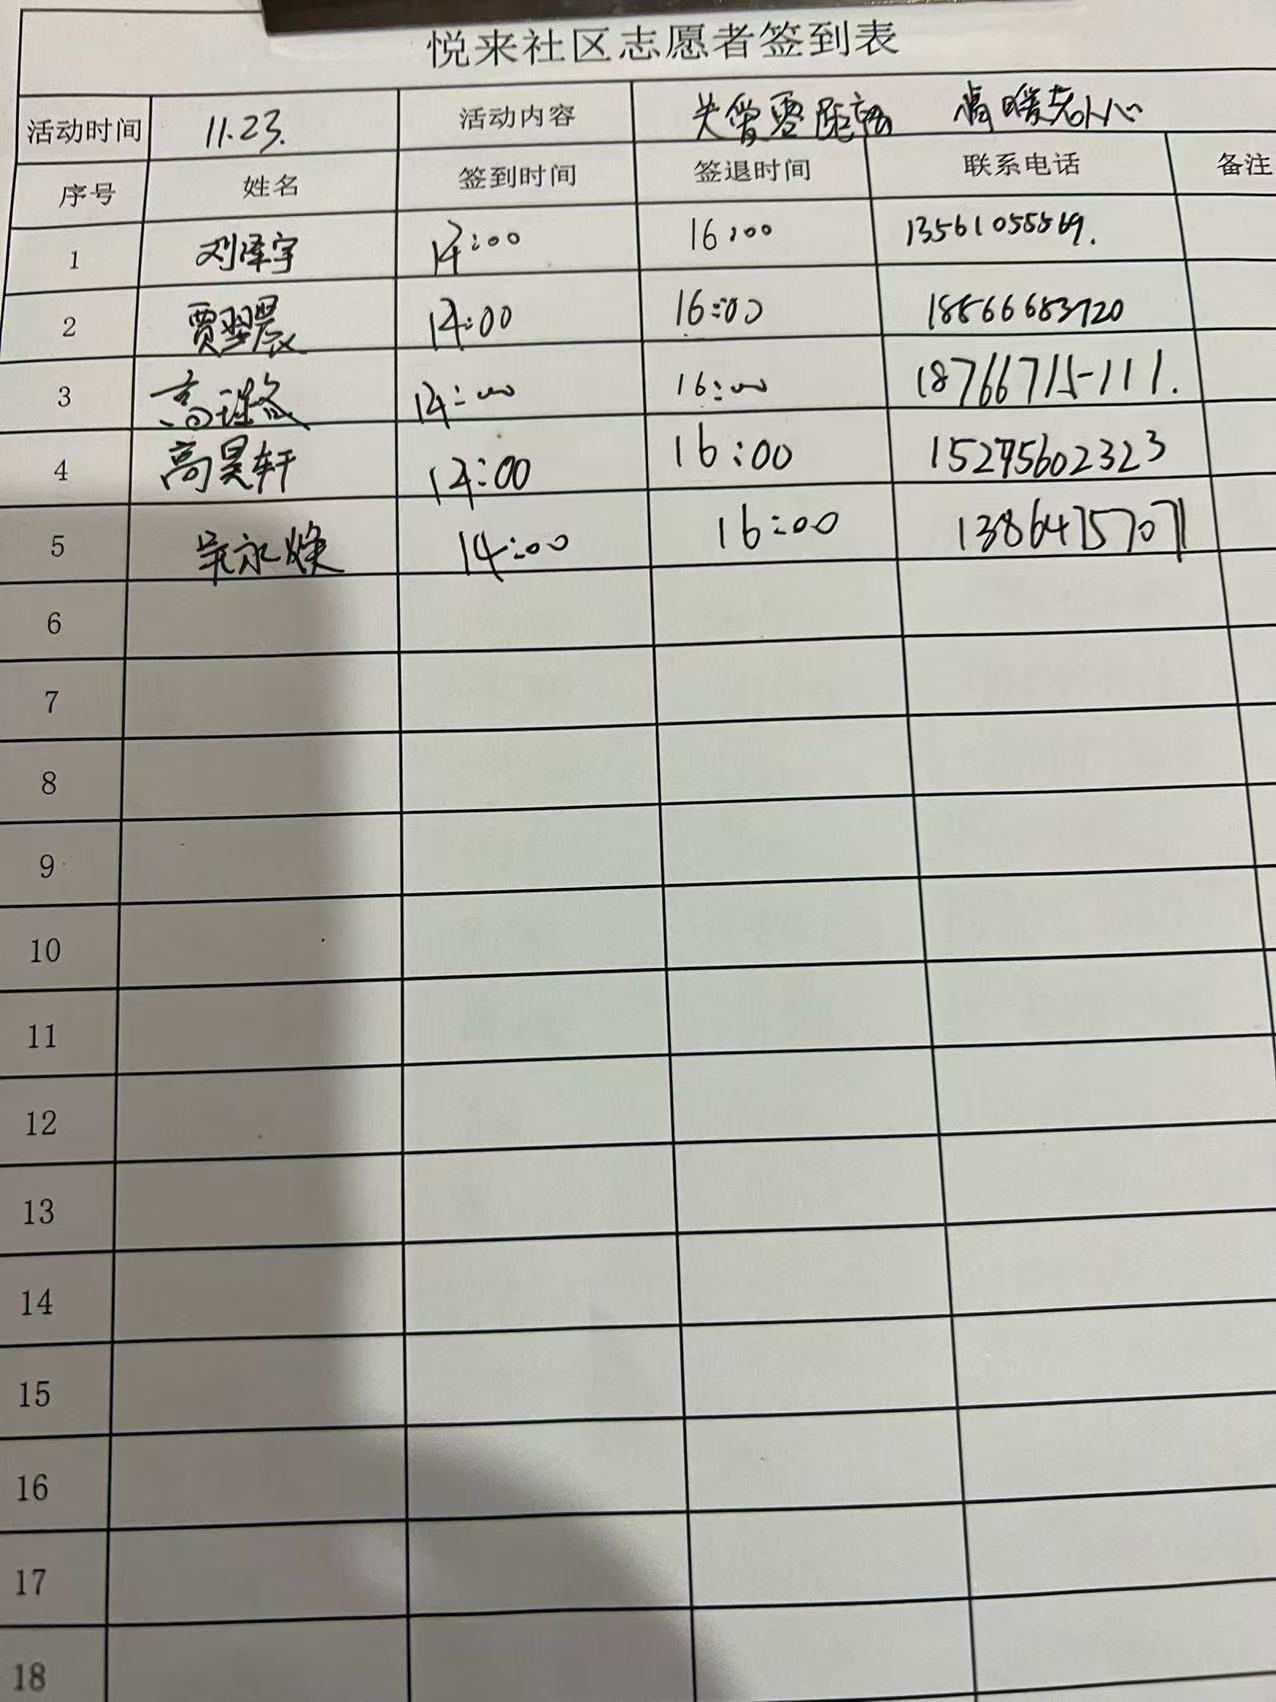 悦来社区志愿者签到表
活动时间 11.23. 活动内容 关爱零距离 情暖老人心
序号 姓名 签到时间 签退时间 联系电话 备注
1 刘泽宇 14:00 16:00 13561055569.
2 贾翌晨 14:00 16:00 18866683720
3 高 14:00 16:00 18766715111.
4 高昊轩 14:00 16:00 15275602323
5 永焕 14:00 16:00 13864757071
6
7
8
9
10
11
12
13
14
15
16
17
18